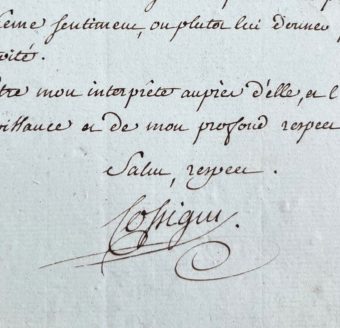 même sentiment, ou plutôt lui donner
vité.
tre mon interprète auprès d'elle, et l
issance et de mon profond respec
Salut, respect.
Cossigny.